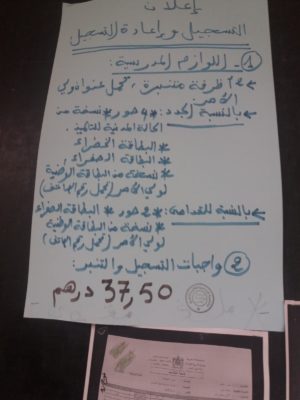 إعلان
التسجيل وإعادة التسجيل
1- اللوازم المدرسية:
2 أظرفة متنبرة، تحمل عنوان ولي
الأمر.
بالنسبة للجدد: * 4 صور * نسخة من
الحالة المدنية للتلميذ.
* البطاقة الخضراء
* البطاقة الصفراء
* نسخة من البطاقة الوطنية
لولي الأمر (تحمل رقم الهاتف)
بالنسبة للقدامى: * 2 صور * البطاقة الصفراء
* نسخة من البطاقة الوطنية
لولي الأمر (تحمل رقم الهاتف)
2 واجبات التسجيل والتنبر:
37,50 درهم